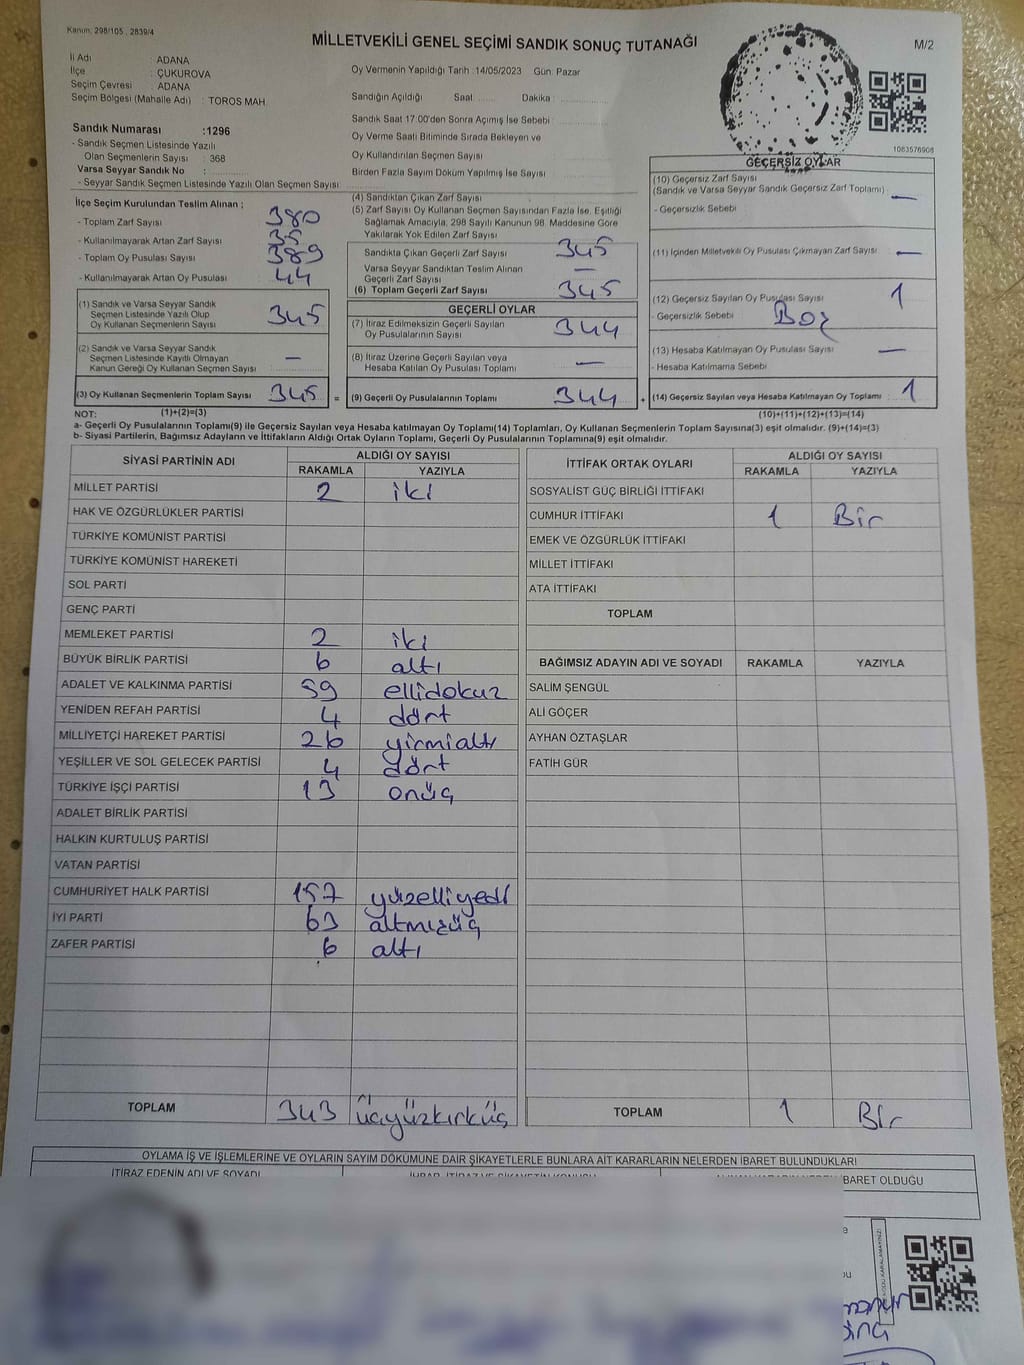 Kanun: 298/105 , 2839/4
MİLLETVEKİLİ GENEL SEÇİMİ SANDIK SONUÇ TUTANAĞI
M/2
İl Adı ADANA
İlçe : ÇUKUROVA
Seçim Çevresi : ADANA
Seçim Bölgesi (Mahalle Adı) : TOROS MAH.
Oy Vermenin Yapıldığı Tarih : 14/05/2023 Gün: Pazar
Sandığın Açıldığı Saat: Dakika :
Sandık Saat 17:00'den Sonra Açımış İse Sebebi :
Oy Verme Saati Bitiminde Sırada Bekleyen ve
Oy Kullandırılan Seçmen Sayısı
Birden Fazla Sayım Döküm Yapılmış İse Sayısı :
Sandık Numarası :1296
- Sandık Seçmen Listesinde Yazılı
Olan Seçmenlerin Sayısı : 368
Varsa Seyyar Sandık No :
- Seyyar Sandık Seçmen Listesinde Yazılı Olan Seçmen Sayısı :
İlçe Seçim Kurulundan Teslim Alınan ;
- Toplam Zarf Sayısı 380
- Kullanılmayarak Artan Zarf Sayısı 35
- Toplam Oy Pusulası Sayısı 389
- Kullanılmayarak Artan Oy Pusulası 44
(1) Sandık ve Varsa Seyyar Sandık
Seçmen Listesinde Yazılı Olup
Oy Kullanan Seçmenlerin Sayısı 345
(2) Sandık ve Varsa Seyyar Sandık
Seçmen Listesinde Kayıtlı Olmayan
Kanun Gereği Oy Kullanan Seçmen Sayısı —
(3) Oy Kullanan Seçmenlerin Toplam Sayısı 345 =
(4) Sandıktan Çıkan Zarf Sayısı
(5) Zarf Sayısı Oy Kullanan Seçmen Sayısından Fazla İse, Eşitliği
Sağlamak Amacıyla, 298 Sayılı Kanunun 98. Maddesine Göre
Yakılarak Yok Edilen Zarf Sayısı
Sandıkta Çıkan Geçerli Zarf Sayısı 345
Varsa Seyyar Sandıktan Teslim Alınan
Geçerli Zarf Sayısı —
(6) Toplam Geçerli Zarf Sayısı 345
GEÇERLİ OYLAR
(7) İtiraz Edilmeksizin Geçerli Sayılan
Oy Pusulalarının Sayısı 344
(8) İtiraz Üzerine Geçerli Sayılan veya
Hesaba Katılan Oy Pusulası Toplamı —
(9) Geçerli Oy Pusulalarının Toplamı 344 +
1083576908
GEÇERSİZ OYLAR
(10) Geçersiz Zarf Sayısı
(Sandık ve Varsa Seyyar Sandık Geçersiz Zarf Toplamı) —
- Geçersizlik Sebebi
(11) İçinden Milletvekili Oy Pusulası Çıkmayan Zarf Sayısı —
(12) Geçersiz Sayılan Oy Pusulası Sayısı 1
- Geçersizlik Sebebi Boş
(13) Hesaba Katılmayan Oy Pusulası Sayısı —
- Hesaba Katılmama Sebebi
(14) Geçersiz Sayılan veya Hesaba Katılmayan Oy Toplamı : 1
NOT: (1)+(2)=(3)
(10)+(11)+(12)+(13)=(14)
a- Geçerli Oy Pusulalarının Toplamı(9) ile Geçersiz Sayılan veya Hesaba katılmayan Oy Toplamı(14) Toplamları, Oy Kullanan Seçmenlerin Toplam Sayısına(3) eşit olmalıdır. (9)+(14)=(3)
b- Siyasi Partilerin, Bağımsız Adayların ve İttifakların Aldığı Ortak Oyların Toplamı, Geçerli Oy Pusulalarının Toplamına(9) eşit olmalıdır.
SİYASİ PARTİNİN ADI ALDIĞI OY SAYISI
RAKAMLA YAZIYLA
MİLLET PARTİSİ 2 iki
HAK VE ÖZGÜRLÜKLER PARTİSİ
TÜRKİYE KOMÜNİST PARTİSİ
TÜRKİYE KOMÜNİST HAREKETİ
SOL PARTİ
GENÇ PARTİ
MEMLEKET PARTİSİ 2 iki
BÜYÜK BİRLİK PARTİSİ 6 altı
ADALET VE KALKINMA PARTİSİ 59 ellidokuz
YENİDEN REFAH PARTİSİ 4 dört
MİLLİYETÇİ HAREKET PARTİSİ 26 yirmialtı
YEŞİLLER VE SOL GELECEK PARTİSİ 4 dört
TÜRKİYE İŞÇİ PARTİSİ 13 onüç
ADALET BİRLİK PARTİSİ
HALKIN KURTULUŞ PARTİSİ
VATAN PARTİSİ
CUMHURİYET HALK PARTİSİ 157 yüzelliyedi
İYİ PARTİ 63 altmışüç
ZAFER PARTİSİ 6 altı
TOPLAM 343 üçyüzkırküç
İTTİFAK ORTAK OYLARI ALDIĞI OY SAYISI
RAKAMLA YAZIYLA
SOSYALİST GÜÇ BİRLİĞİ İTTİFAKI
CUMHUR İTTİFAKI 1 Bir
EMEK VE ÖZGÜRLÜK İTTİFAKI
MİLLET İTTİFAKI
ATA İTTİFAKI
TOPLAM
BAĞIMSIZ ADAYIN ADI VE SOYADI RAKAMLA YAZIYLA
SALİM ŞENGÜL
ALİ GÖÇER
AYHAN ÖZTAŞLAR
FATİH GÜR
TOPLAM 1 Bir
OYLAMA İŞ VE İŞLEMLERİNE VE OYLARIN SAYIM DÖKÜMÜNE DAİR ŞİKAYETLERLE BUNLARA AİT KARARLARIN NELERDEN İBARET BULUNDUKLARI
İTİRAZ EDENİN ADI VE SOYADI
BARET OLDUĞU